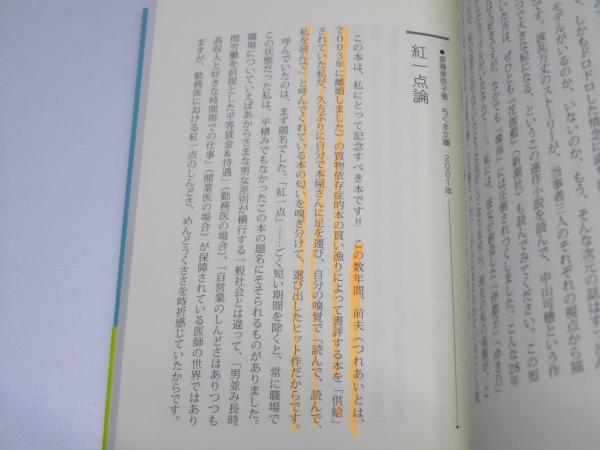 しかもドロドロした情念に
モデルがいるのか、いないのか、もう、そんな次元の話は
です。波乱万丈のストーリーが、当事者三人のそれぞれの視点から描
つ大きな絵になる、というこの連作小説を読んで、中山可穂という作
も読んでみてください。この短
こんな28年
●斎藤美奈子著 ちくま文庫 2001年
紅一点論
この本は、私にとって記念すべき本です!! この数年間、前夫(つれあいとは、
2003年に離婚しました)の買物依存症的本の買い漁りによって書評する本を「供給」
されていた私が、久方ぶりに自分で本屋さんに足を運び、自分の嗅覚で「読んで、読んで、
私を読んで」と呼んでくれている本の匂いを嗅ぎ分けて、選び出したヒット作だからです。
呼んでいたのは、まず題名でした。「紅一点」……ごく短い期間を除くと、常に職場で
この状態だった私は、平積みでもなかったこの本の題名にそそられるものがありました。
職場についていえばあからさまな男女差別が横行する一般社会とは違って、「男並み長時
間労働を前提とした平等賃金&待遇」(勤務医の場合)、「自営業のしんどさはありつつも
高収入と好きな時間帯での仕事」(開業医の場合)が保障されている医師の世界ではあり
ますが、勤務医における紅一点のしんどさ、めんどうくささを時折感じていたからです。